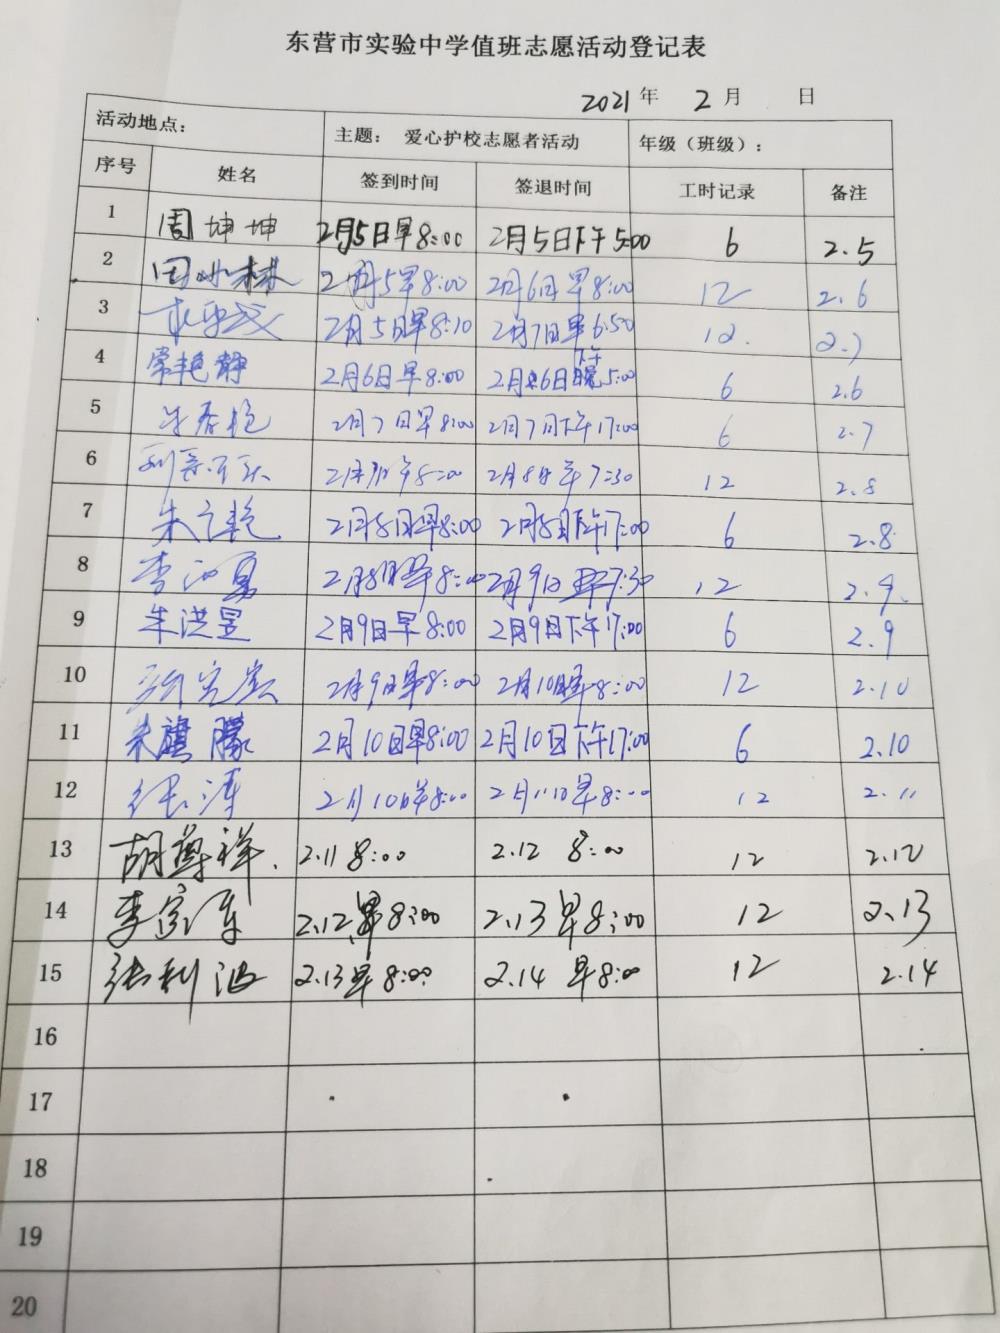 东营市实验中学值班志愿活动登记表
2021年 2月 日
活动地点： 主题： 爱心护校志愿者活动 年级（班级）：
序号 姓名 签到时间 签退时间 工时记录 备注
1 周坤坤 2月5日早8:00 2月5日下午5:00 6 2.5
2 2月5早8:00 2月6日早8:00 12 2.6
3 2月5日早8:10 2月7日早6:50 12. 2.7
4 常艳静 2月6日早8:00 2月6日下午5:00 6 2.6
5 2月7日早8:00 2月7日下午17:00 6 2.7
6 8:00 2月8日 7:30 12 2.8
7 朱 艳 2月8日早8:00 2月8日下午17:00 6 2.8
8 李 勇 2月8日早8:00 2月9日早7:30 12 2.9.
9 朱洪昱 2月9日早8:00 2月9日下午17:00 6 2.9
10 2月9日早8:00 2月10日早8:00 12 2.10
11 朱旗朦 2月10日早8:00 2月10日下午17:00 6 2.10
12 张涛 2月10日早8:00 2月11日早8:00 12 2.11
13 胡尊祥. 2.11 8:00 2.12 8:00 12 2.12
14 李宗军 2.12早8:00 2.13早8:00 12 2.13
15 张利波 2.13早8:00 2.14 早8:00 12 2.14
16
17
18
19
20